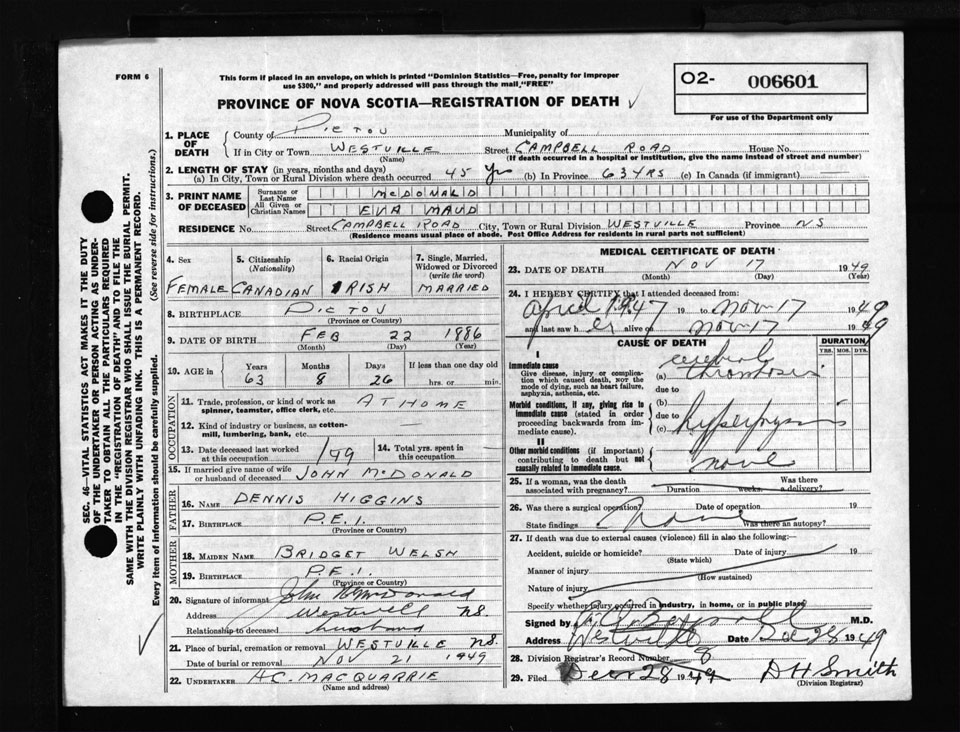 FORM 6
This form if placed in an envelope, on which is printed "Dominion Statistics—Free, penalty for improper
use $300," and properly addressed will pass through the mail, "FREE"
O2- 006601
For use of the Department only
PROVINCE OF NOVA SCOTIA—REGISTRATION OF DEATH
SEC. 46—VITAL STATISTICS ACT MAKES IT THE DUTY
OF THE UNDERTAKER OR PERSON ACTING AS UNDER-
TAKER TO OBTAIN ALL THE PARTICULARS REQUIRED
IN THE "REGISTRATION OF DEATH" AND TO FILE THE
SAME WITH THE DIVISION REGISTRAR WHO SHALL ISSUE THE BURIAL PERMIT.
WRITE PLAINLY WITH UNFADING INK. THIS IS A PERMANENT RECORD.
Every item of information should be carefully supplied. (See reverse side for instructions.)
1. PLACE OF DEATH
County of PICTOU Municipality of
If in City or Town WESTVILLE Street CAMPBELL ROAD House No.
(Name) (If death occurred in a hospital or institution, give the name instead of street and number)
2. LENGTH OF STAY (in years, months and days)
(a) In City, Town or Rural Division where death occurred 45 yrs (b) In Province 63 YRS (c) In Canada (if immigrant)
3. PRINT NAME OF DECEASED
Surname or Last Name McDONALD
All Given or Christian Names EVA MAUD
RESIDENCE No. Street CAMPBELL ROAD City, Town or Rural Division WESTVILLE Province NS
(Residence means usual place of abode. Post Office Address for residents in rural parts not sufficient)
4. Sex
FEMALE
5. Citizenship (Nationality)
CANADIAN
6. Racial Origin
IRISH
7. Single, Married, Widowed or Divorced (write the word)
MARRIED
8. BIRTHPLACE PICTOU
(Province or Country)
9. DATE OF BIRTH FEB 22 1886
(Month) (Day) (Year)
10. AGE in Years Months Days If less than one day old
63 8 26 hrs. or min.
OCCUPATION
11. Trade, profession, or kind of work as spinner, teamster, office clerk, etc. AT HOME
12. Kind of industry or business, as cotton-mill, lumbering, bank, etc.
13. Date deceased last worked at this occupation
14. Total yrs. spent in this occupation
15. If married give name of wife or husband of deceased JOHN McDONALD
FATHER
16. NAME DENNIS HIGGINS
17. BIRTHPLACE P.E.I.
(Province or Country)
MOTHER
18. MAIDEN NAME BRIDGET WELSH
19. BIRTHPLACE P.E.I.
(Province or Country)
20. Signature of informant John McDonald
Address Westvill NS.
Relationship to deceased husband
21. Place of burial, cremation or removal WESTVILLE NS.
Date of burial or removal NOV 21 1949
22. UNDERTAKER H.C. MACQUARRIE
(Name and address)
MEDICAL CERTIFICATE OF DEATH
23. DATE OF DEATH NOV 17 1949
(Month) (Day) (Year)
24. I HEREBY CERTIFY that I attended deceased from:
April 1947 19 to Nov 17 1949
and last saw her alive on Nov 17 1949
CAUSE OF DEATH DURATION
YRS. MOS. DYS.
I
Immediate cause
Give disease, injury or complication which caused death, nor the mode of dying, such as heart failure, asphyxia, asthenia, etc.
(a) cerebral thrombosis
due to
Morbid conditions, if any, giving rise to immediate cause (stated in order proceeding backwards from immediate cause).
(b)
due to
(c)
II
Other morbid conditions (if important) contributing to death but not causally related to immediate cause.
none
25. If a woman, was the death associated with pregnancy? Duration weeks. Was there a delivery?
26. Was there a surgical operation? Date of operation 19
State findings None Was there an autopsy?
27. If death was due to external causes (violence) fill in also the following:—
Accident, suicide or homicide? Date of injury 19
(State which)
Manner of injury
(How sustained)
Nature of injury
Specify whether injury occurred in industry, in home, or in public place
Signed by M.D.
Address Westville Date Dec 28 1949
28. Division Registrar's Record Number 8
29. Filed Dec 28 1949 D H Smith
(Division Registrar)